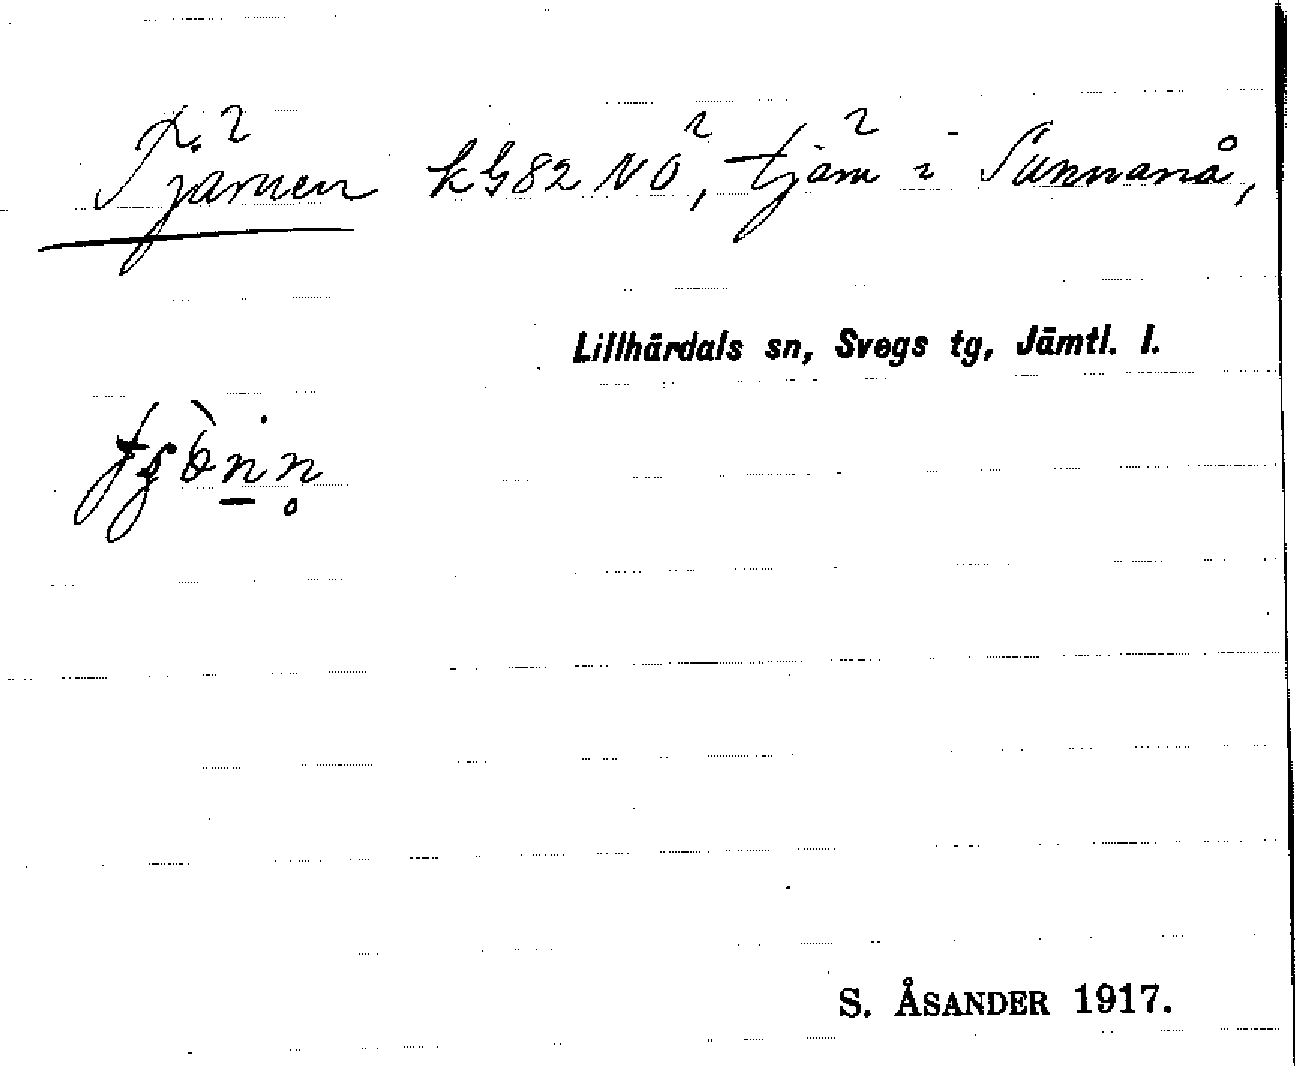 Tjärnen kG82NO, tjärn i Sunnanå,
Lillhärdals sn, Svegs tg, Jämtl. l.
S. ÅSANDER 1917.